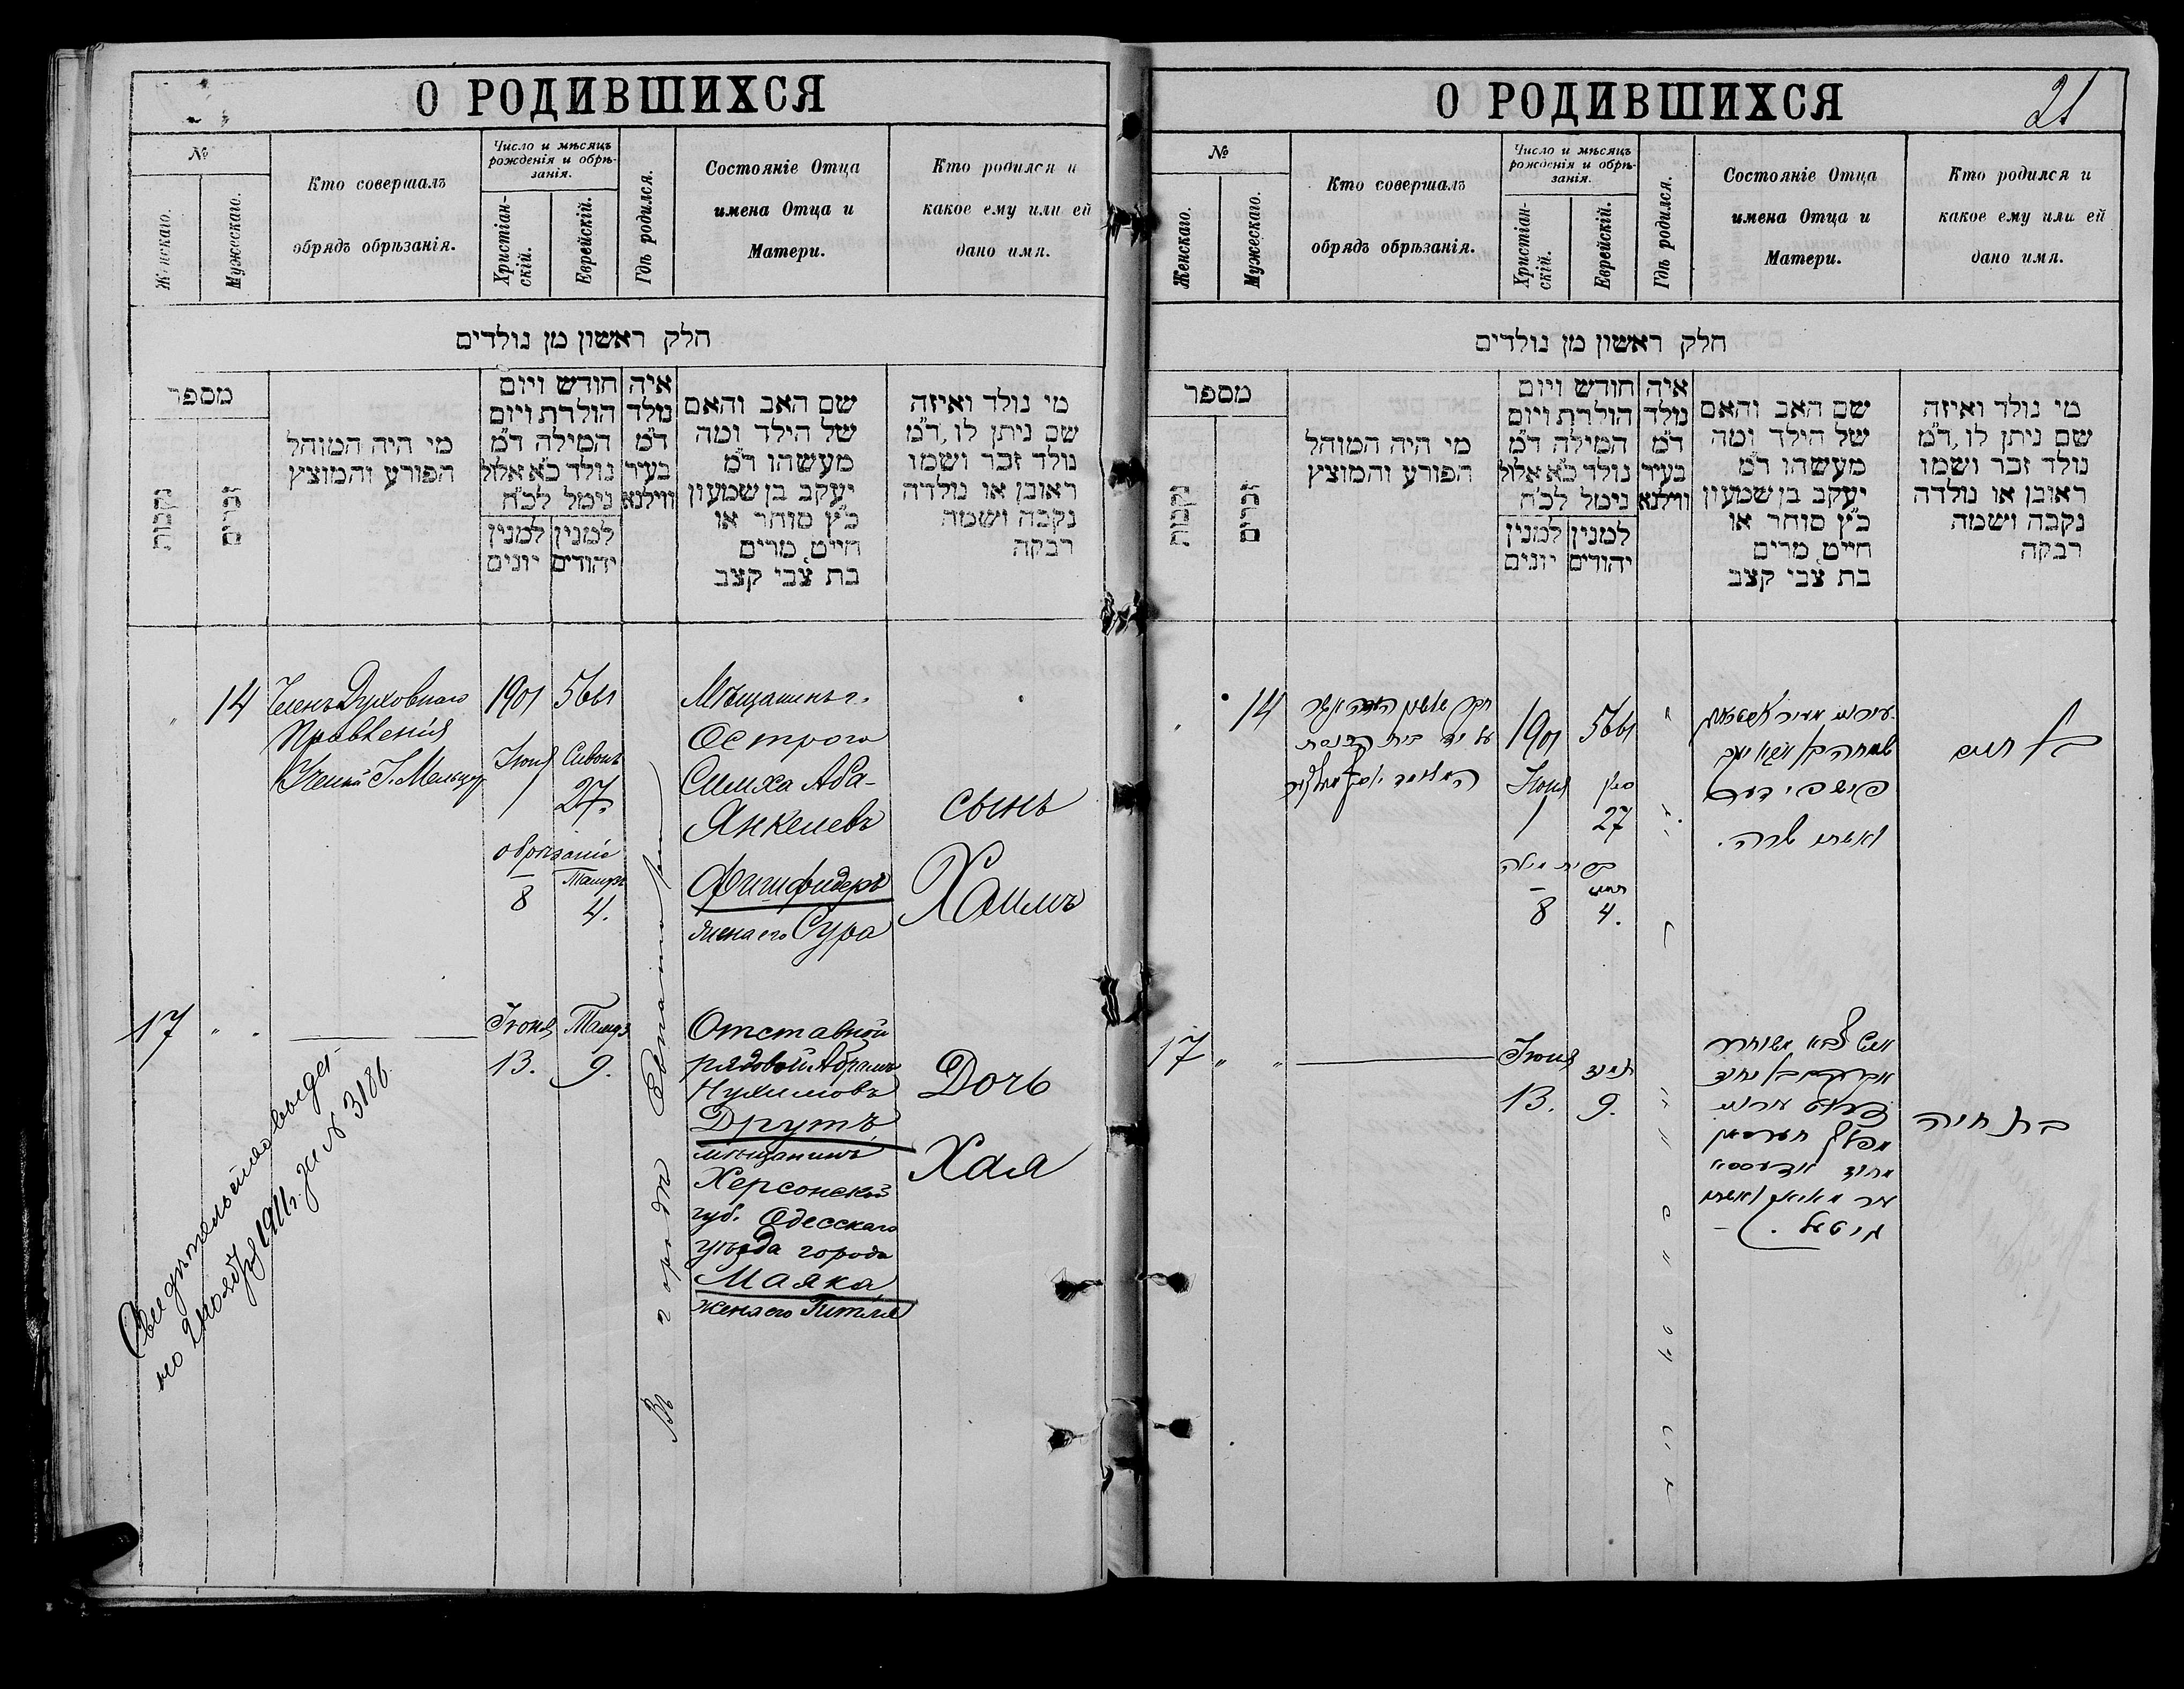 О РОДИВШИХСЯ
№
Женскаго.
Мужескаго.
Кто совершалъ
обрядъ обрѣзанія.
Число и мѣсяцъ
рожденія и обрѣ-
занія.
Христіан-
скій.
Еврейскій.
Гдѣ родился.
Состояніе Отца
имена Отца и
Матери.
Кто родился и
какое ему или ей
дано имя.
חלק ראשון מן נולדים
מספר
נקבות
זכרים
מי היה המוהל
הפורע והמוצץ
חודש ויום
הולדת ויום
המילה ד״מ
נולד כ״א אלול
נימל לכ״ח
למנין יהודים
למנין יונים
איה
נולד
ד״מ
בעיר
ווילנא
שם האב והאם
של הילד ומה
מעשהו ד״מ
יעקב בן שמעון
כ״ץ סוחר או
חייט, מרים
בת צבי קצב
מי נולד ואיזה
שם ניתן לו, ד״מ
נולד זכר ושמו
ראובן או נולדה
נקבה ושמה
רבקה
14
Членъ Духовнаго
Правленія
Ученый Г. Мельцеръ
1901 5661
Іюня Сивонъ
1 27.
обрѣзаніе
Тамузъ
8 4.
Мѣщанинъ г.
Острога
Симха Аба-
Янкелевъ
Фишфидеръ
жена его Сура
сынъ
Хаимъ
17
Іюня Тамузъ
13. 9.
Въ городѣ
Отставной
рядовой Абрамъ
Нухимовъ
Друтъ,
мѣщанинъ
Херсонской
губ. Одесскаго
уѣзда города
Маяка
жена его Гитля
Дочь
Хая
Свидѣтельство выда-
но 2 ноября 1911 г. за № 3186.
О РОДИВШИХСЯ
21
№
Женскаго.
Мужескаго.
Кто совершалъ
обрядъ обрѣзанія.
Число и мѣсяцъ
рожденія и обрѣ-
занія.
Христіан-
скій.
Еврейскій.
Гдѣ родился.
Состояніе Отца
имена Отца и
Матери.
Кто родился и
какое ему или ей
дано имя.
חלק ראשון מן נולדים
מספר
נקבות
זכרים
מי היה המוהל
הפורע והמוצץ
חודש ויום
הולדת ויום
המילה ד״מ
נולד כ״א אלול
נימל לכ״ח
למנין יהודים
למנין יונים
איה
נולד
ד״מ
בעיר
ווילנא
שם האב והאם
של הילד ומה
מעשהו ד״מ
יעקב בן שמעון
כ״ץ סוחר או
חייט, מרים
בת צבי קצב
מי נולד ואיזה
שם ניתן לו, ד״מ
נולד זכר ושמו
ראובן או נולדה
נקבה ושמה
רבקה
14
1901 5661
Іюня סיון
1 27
ברית מילה
תמוז
8 4.
שמחה בן אבא יעקב
פישפידער
ואשתו שרה.
בן חיים
17
Іюня תמוז
13. 9.
אברהם בן נחום
מחוז אדעססא
גיטל.
בת חיה